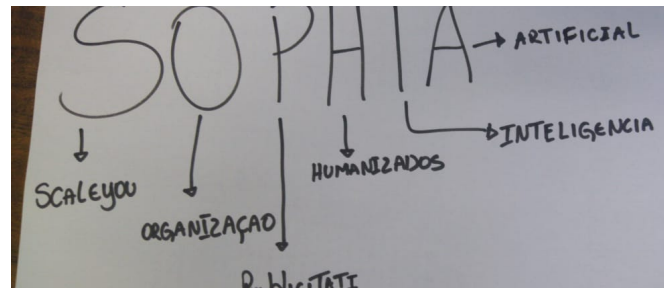 SOPHIA
ARTIFICIAL
INTELIGENCIA
HUMANIZADOS
SCALEYOU
ORGANIZAÇAO